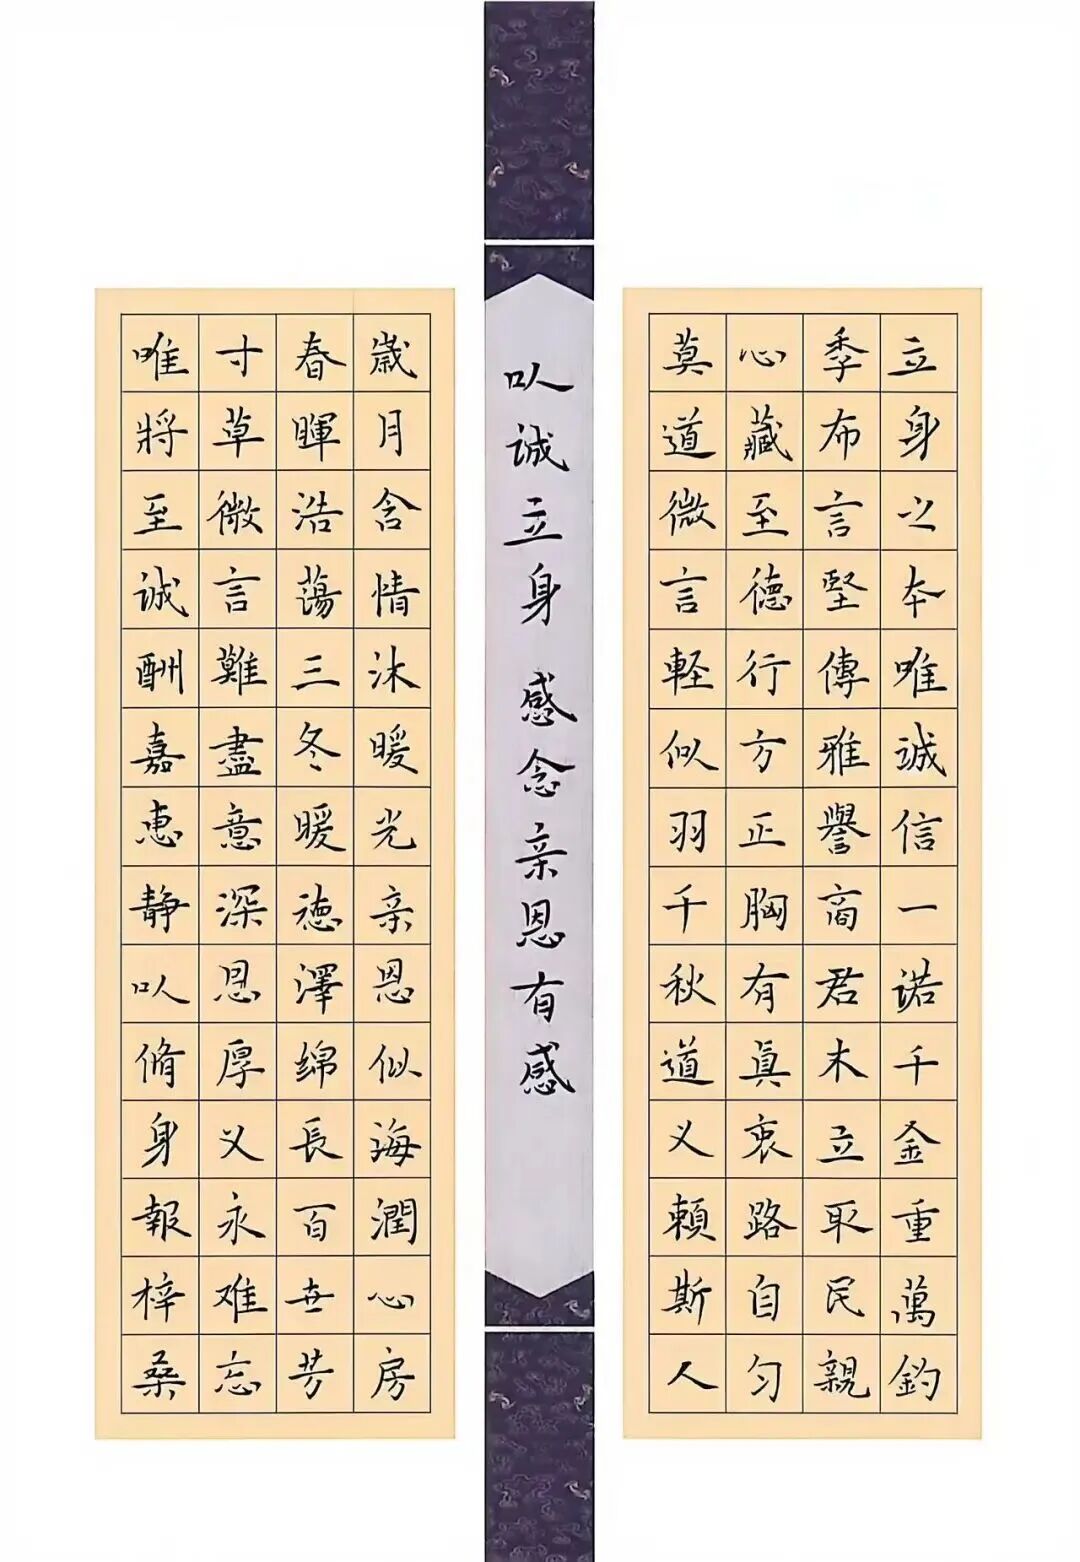 以诚立身 感念亲恩有感
立身之本唯诚信一诺千金重萬鈞
季布言堅傳雅譽商君木立取民親
心藏至德行方正胸有眞衷路自匀
莫道微言軽似羽千秋道义頼斯人
歲月含情沐暖光亲恩似海潤心房
春暉浩蕩三冬暖德澤綿長百世芳
寸草微言難盡意深恩厚义永难忘
唯將至诚酬嘉惠静以脩身報梓桑